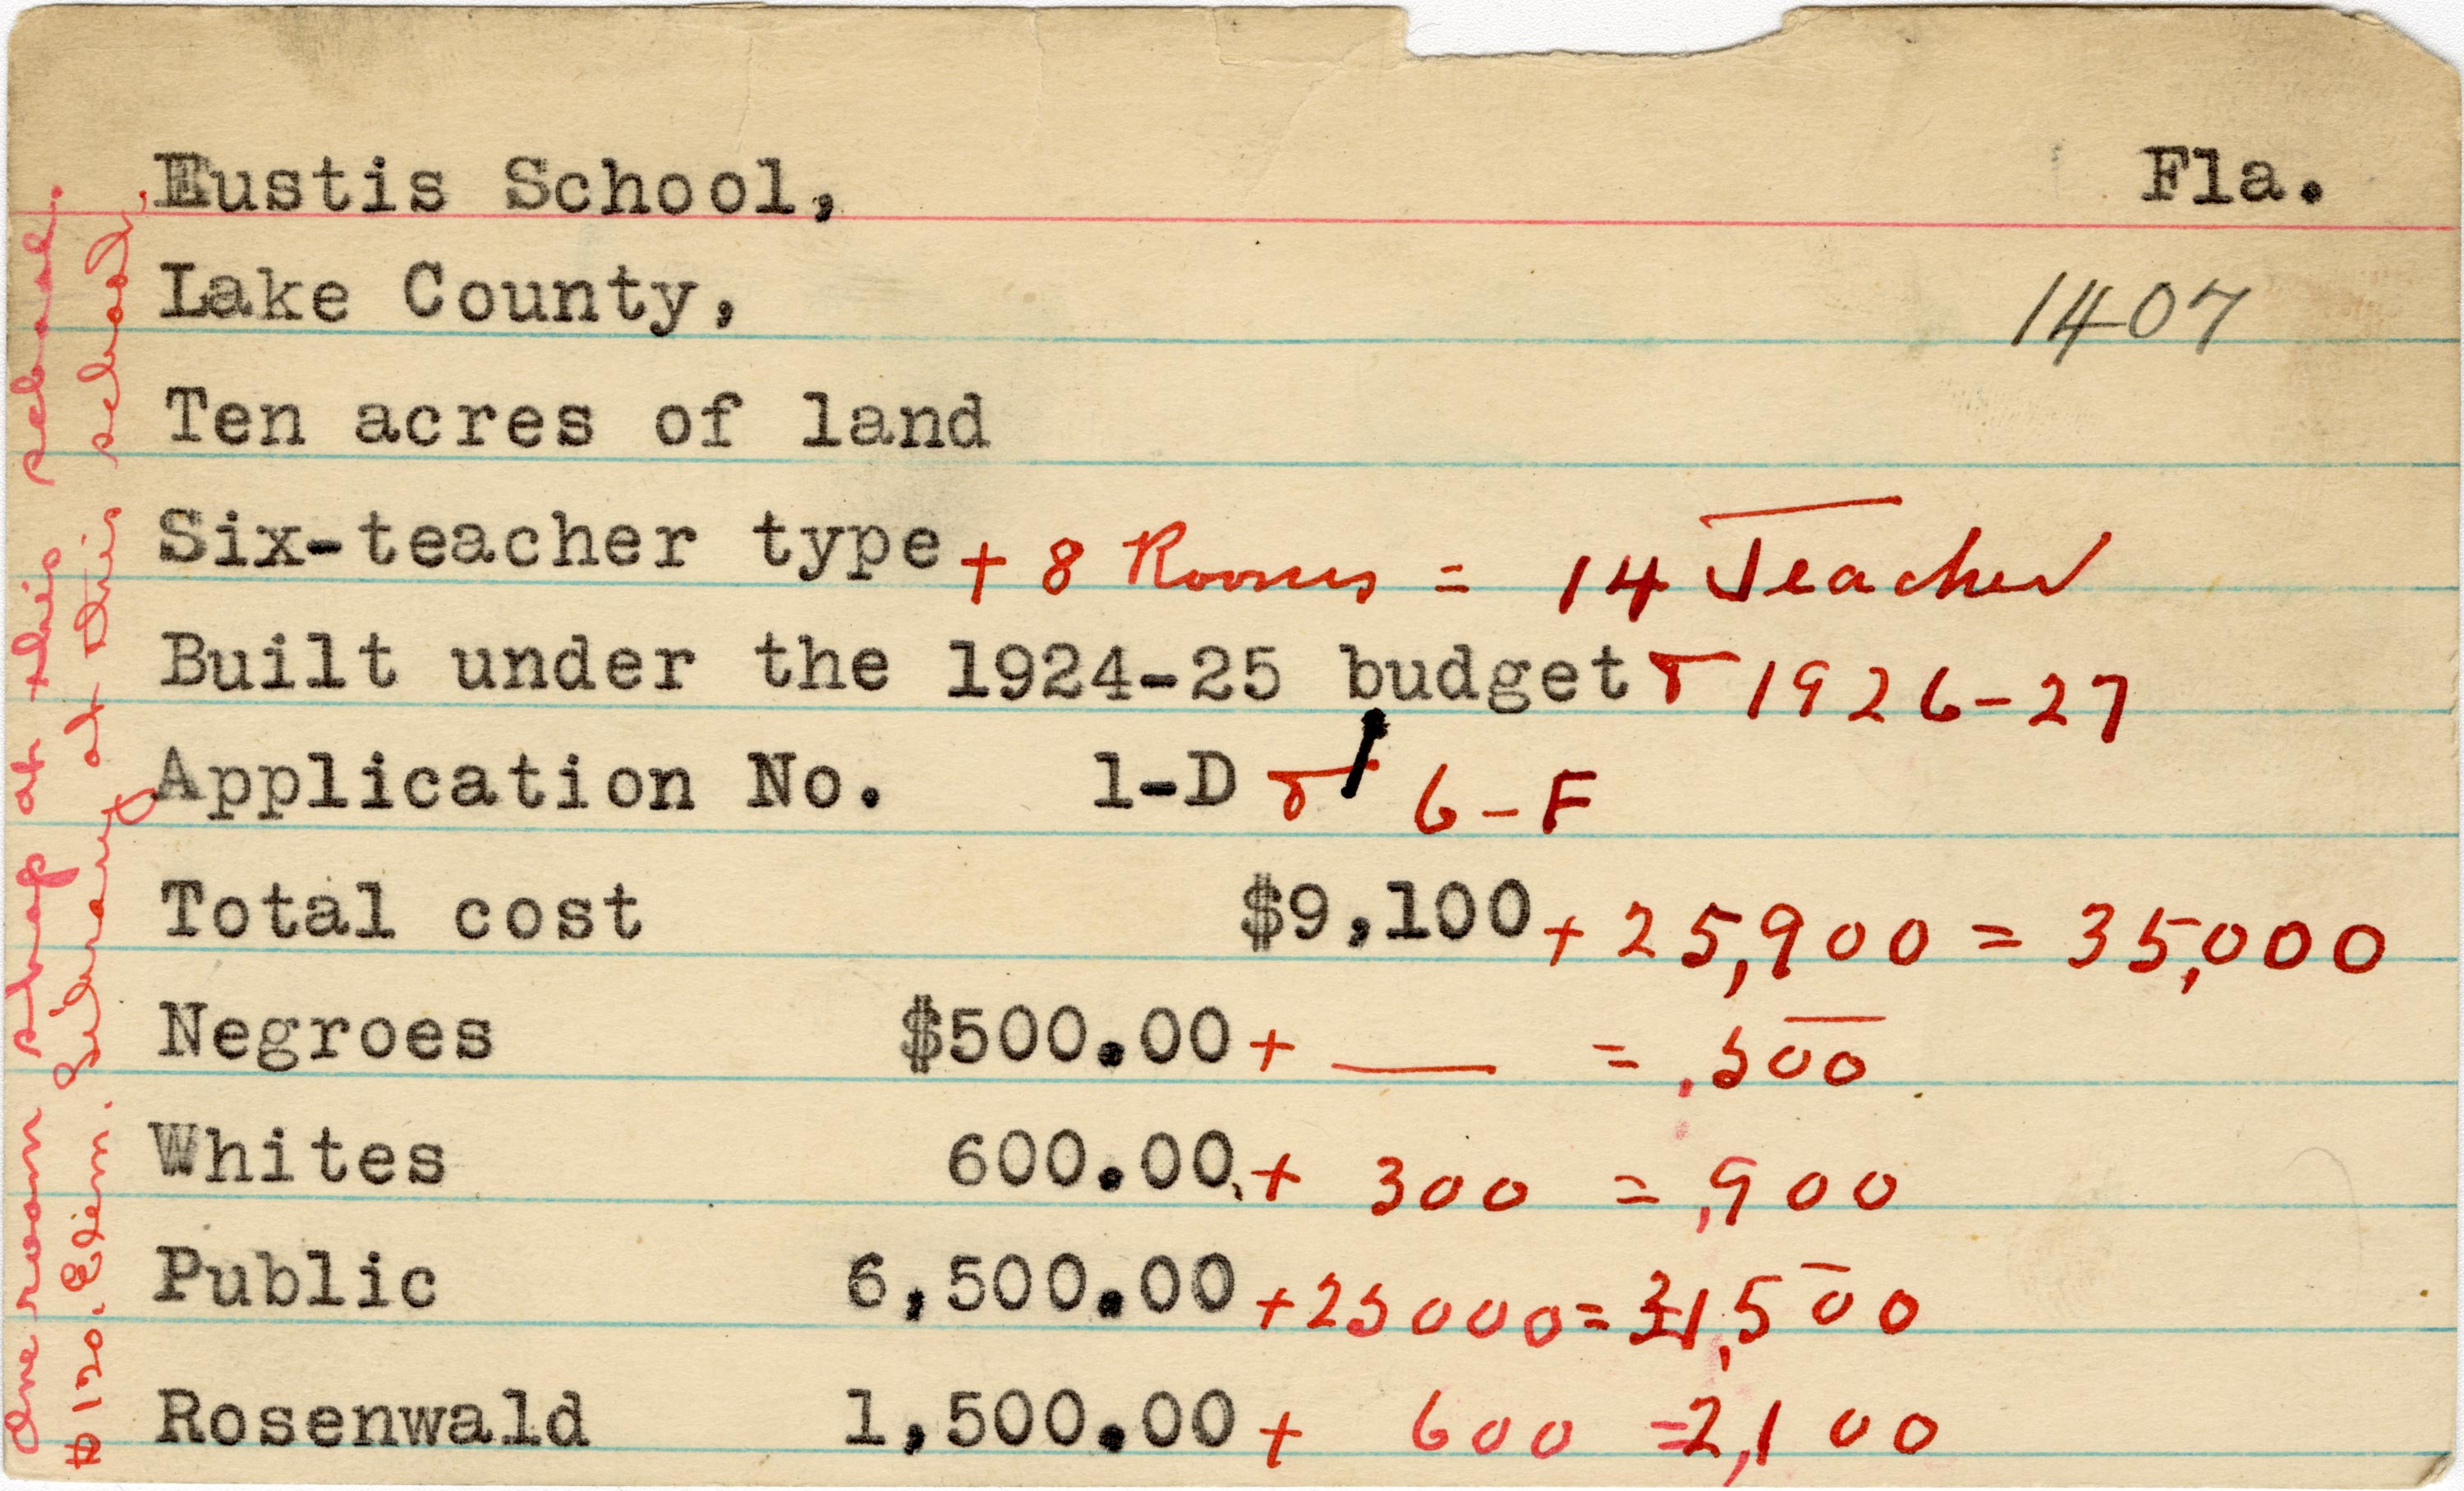 Eustis School, Fla.
Lake County, 1407
Ten acres of land
Six-teacher type + 8 Rooms = 14 Teacher
Built under the 1924-25 budget & 1926-27
Application No. 1-D & 6-F
Total cost $9,100 + 25,900 = 35,000
Negroes $500.00 + — = .500
Whites 600.00 + 300 = ,900
Public 6,500.00 + 25000 = 31,500
Rosenwald 1,500.00 + 600 = 2,100
One room shop at this school.
$120. Elem. Library at this school.